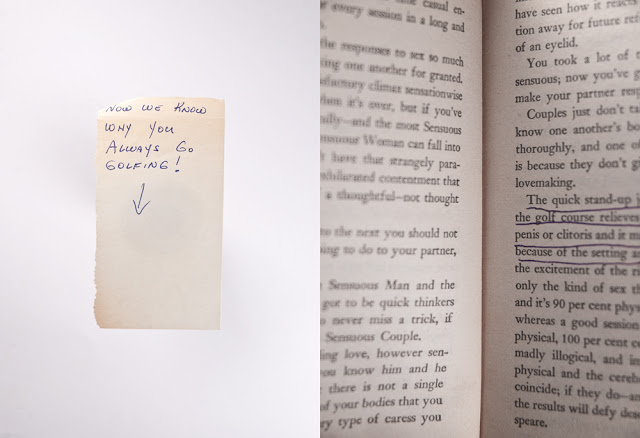 NOW WE KNOW
WHY YOU
ALWAYS GO
GOLFING!
casual en-
every session in a long and
the responses to sex so much
one another for granted.
climax sensationwise
when it's over, but if you've
and the most Sensuous
Woman can fall into
have that strangely para-
contentment that
a thoughtful—not thought
to the next you should not
to do to your partner,
Sensuous Man and the
got to be quick thinkers
to never miss a trick, if
Sensuous Couple.
love, however sen-
you know him and he
there is not a single
of your bodies that you
type of caress you
have seen how it reacts
tion away for future
of an eyelid.
You took a lot of
sensuous; now you've
make your partner
Couples just don't
know one another's
thoroughly, and one of
is because they don't
lovemaking.
The quick stand-up
the golf course
penis or clitoris and it
because of the setting
the excitement of the
only the kind of sex
and it's 90 per cent
whereas a good session
physical, 100 per cent
madly illogical, and
physical and the
coincide; if they do—
the results will defy
speare.